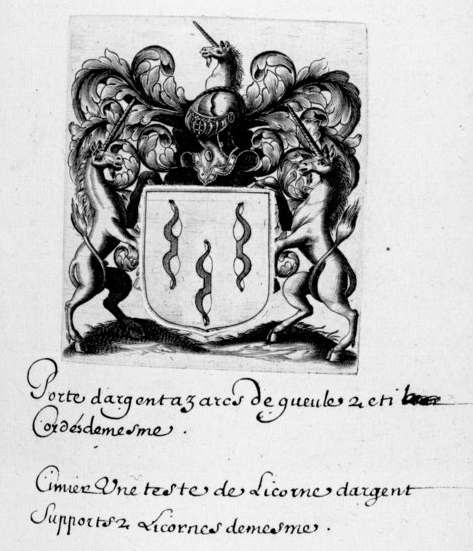 Porte dargent a 3 arcs de gueule 2 et i
Cordés demesme .
Cimier Vne teste de Licorne dargent
Supports 2 Licornes demesme .